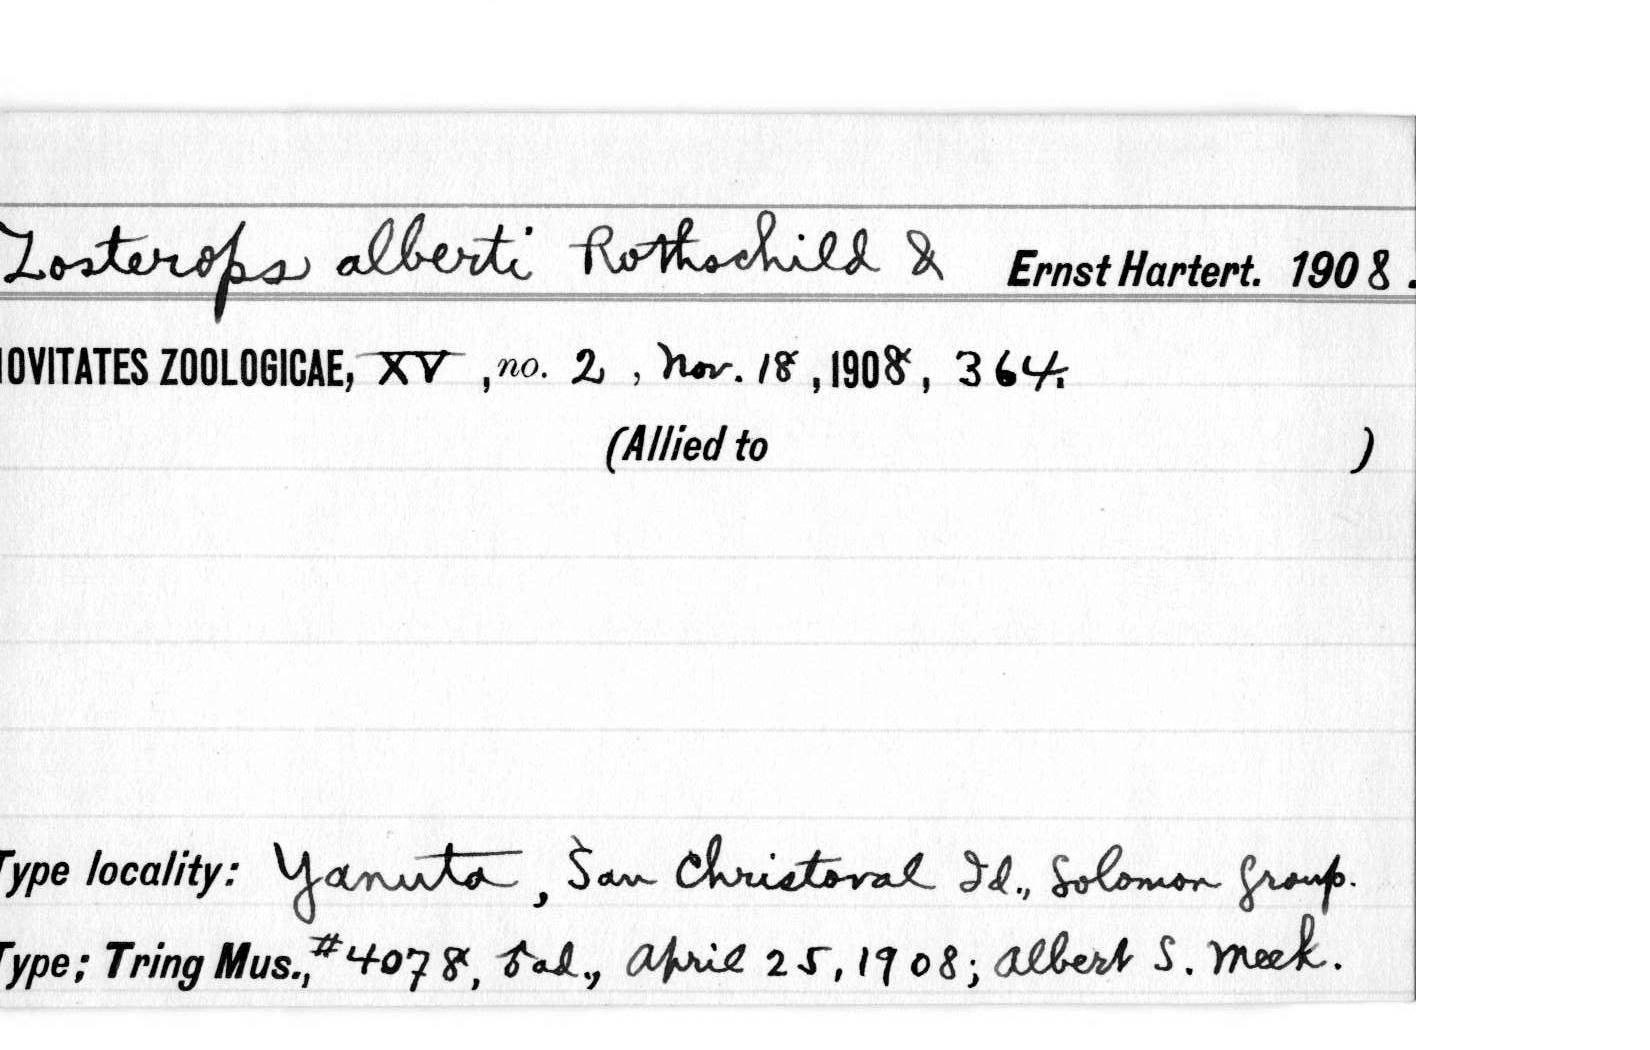 Zosterops alberti Rothschild & Ernst Hartert. 1908.
NOVITATES ZOOLOGICAE, XV, no. 2, Nov. 18, 1908, 364.
(Allied to )
Type locality: Yanuta, San Christoval Id., Solomon Group.
Type; Tring Mus., #4078, ♂ ad., April 25, 1908; Albert S. Meek.